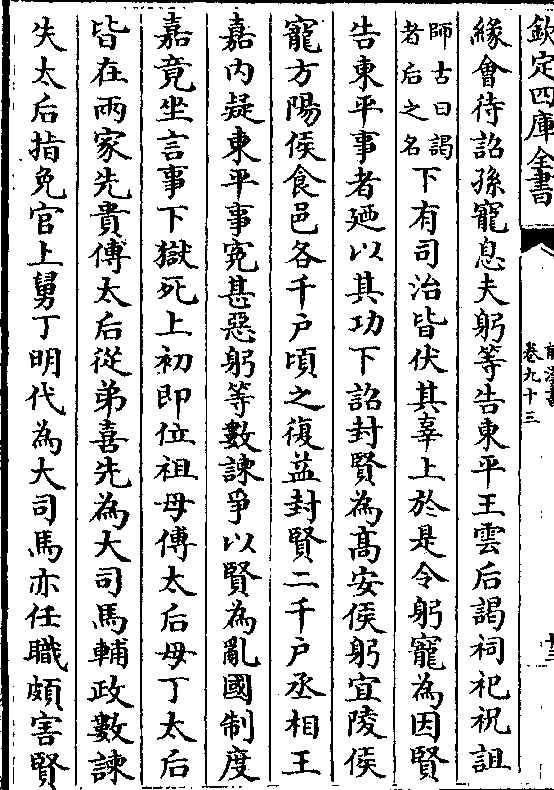 欽定四庫全書
前漢書
卷九十三
緣會待詔孫寵息夫躬等告東平王雲后謁祠祀祝詛
師古曰謁
者后之名
下有司治皆伏其辜上於是令躬寵為因賢
告東平事者廼以其功下詔封賢為髙安侯躬宜陵侯
寵方陽侯食邑各千戶頃之復益封賢二千戶丞相王
嘉內疑東平事寃甚惡躬等數諫爭以賢為亂國制度
嘉竟坐言事下獄死上初即位祖母傅太后母丁太后
皆在兩家先貴傅太后從弟喜先為大司馬輔政數諫
失太后指免官上舅丁明代為大司馬亦任職頗害賢